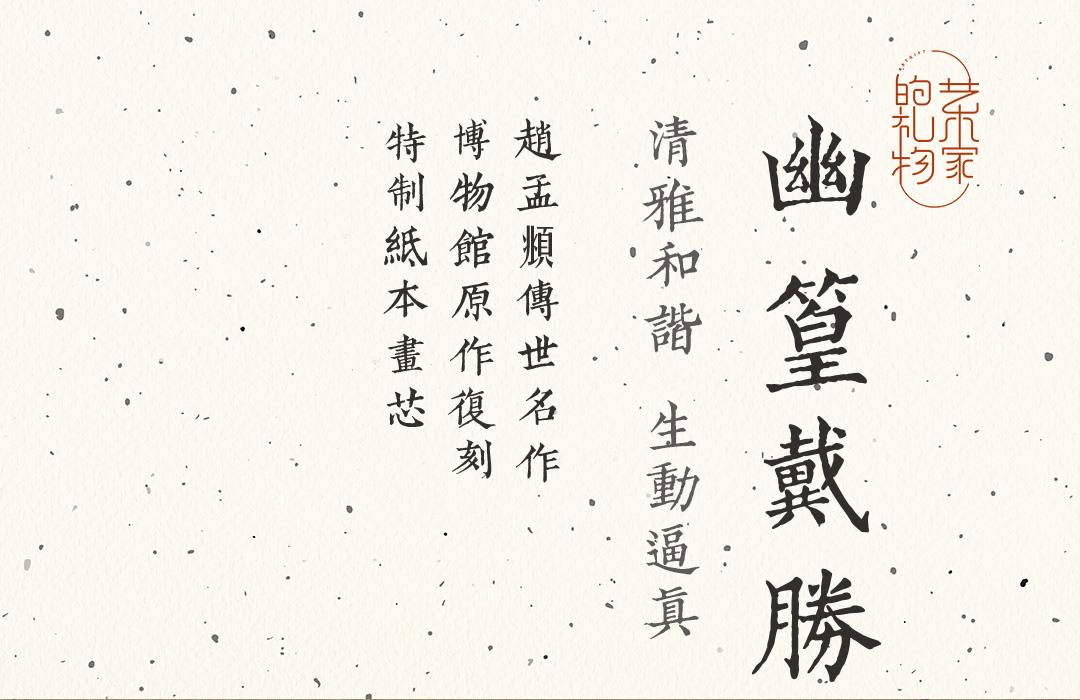 艺术家
的礼物
幽篁戴勝
清雅和諧 生動逼真
趙孟頫傳世名作
博物館原作復刻
特制紙本畫芯